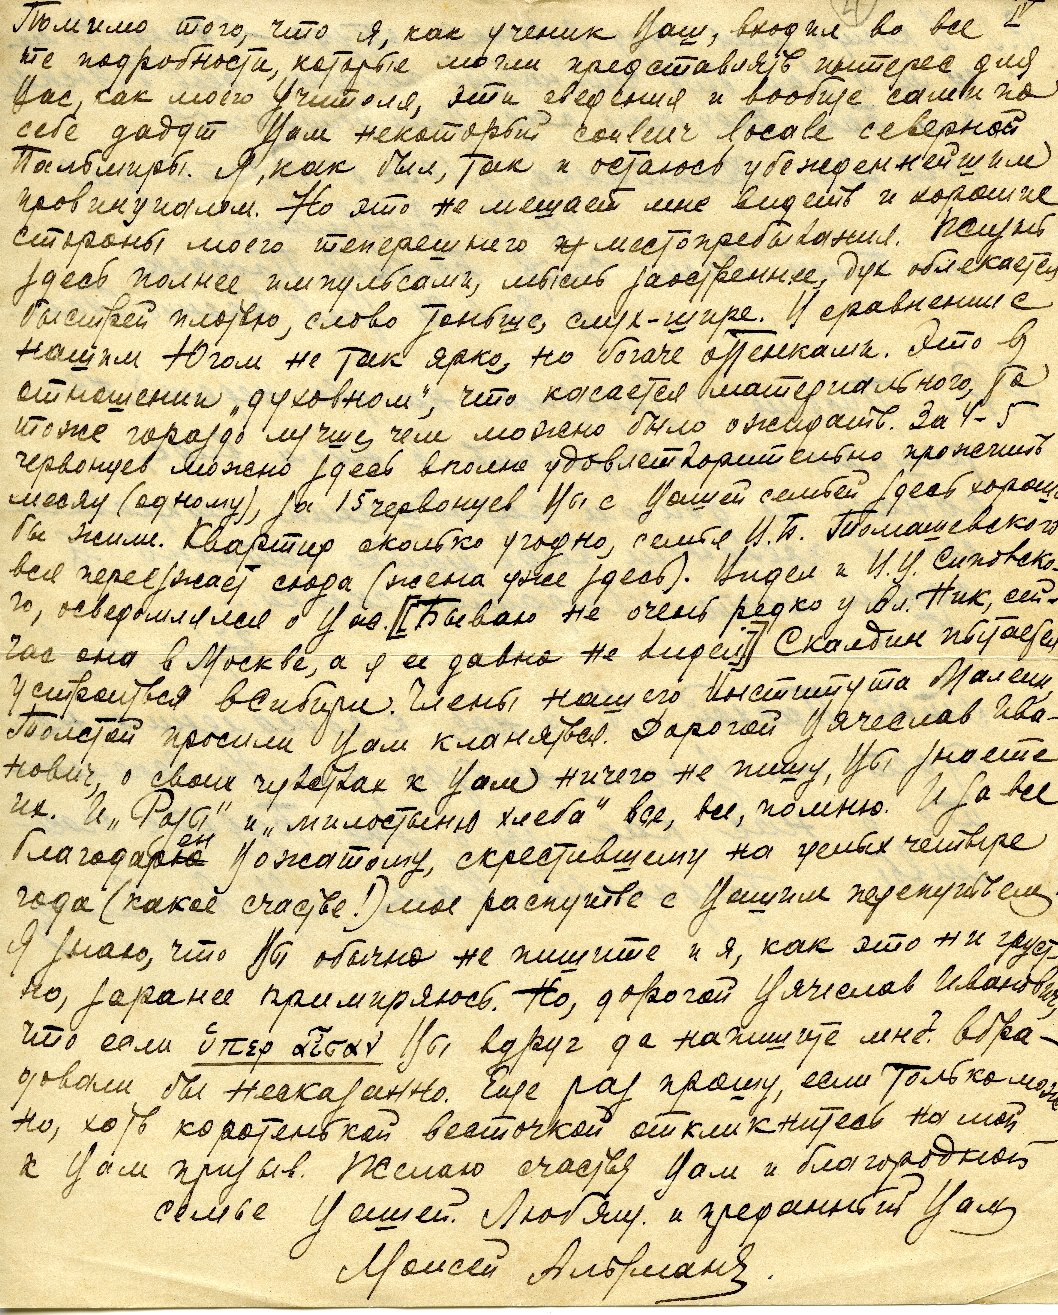 4 IV
Помимо того, что я, как ученик Ваш, входил во все
те подробности, которые могли представлять интерес для
Вас, как моего Учителя, эти сведения и вообще сами по
себе дадут Вам некоторый couleur locale северной
Пальмиры. Я, как был, так и остаюсь убежденнейшим
провинциалом. Но это не мешает мне видеть и хорошие
стороны моего теперешнего местопребывания. Жизнь
здесь полнее импульсами, мысль заостреннее, дух облекается
быстрей плотью, слово тоньше, слух-шире. В сравнении с
нашим Югом не так ярко, но богаче оттенками. Это в
отношении „духовном", что касается материального, то
тоже гораздо лучше, чем можно было ожидать. За 4-5
червонцев можно здесь вполне удовлетворительно прожить
месяц (одному), за 15 червонцев Вы с Вашей семьей здесь хорошо
бы жили. Квартир сколько угодно, семья Томашевского
вся переезжает сюда (жена уже здесь). Видел и В.В. Сиповско-
го, осведомлялся о Вас. [Бываю не очень редко у Ел. Ник, сей-
час она в Москве, а я ее давно не видел.] Скалдин пытается
устроиться в Сибири. Члены нашего Института Малеин,
Толстой просили Вам кланяться. Дорогой Вячеслав Ива-
нович, о своих чувствах к Вам ничего не пишу, Вы знаете
их. И „Розы" и „милостыню хлеба" все, все, помню. И за все
благодарен Вожатому, скрестившему на целых четыре
года (какое счастье!) мое распутье с Вашим перепутьем.
Я знаю, что Вы обычно не пишите и я, как это ни груст-
но, заранее примиряюсь. Но, дорогой Вячеслав Иванович,
что если ὑπὲρ αἶσαν Вы вдруг да напишите мне? Обра-
довали бы несказанно. Еще раз прошу, если только мож-
но, хоть коротенькой весточкой откликнитесь на мой
к Вам призыв. Желаю счастья Вам и благородной
семье Вашей. Любящ. и преданный Вам
Моисей Альтман.